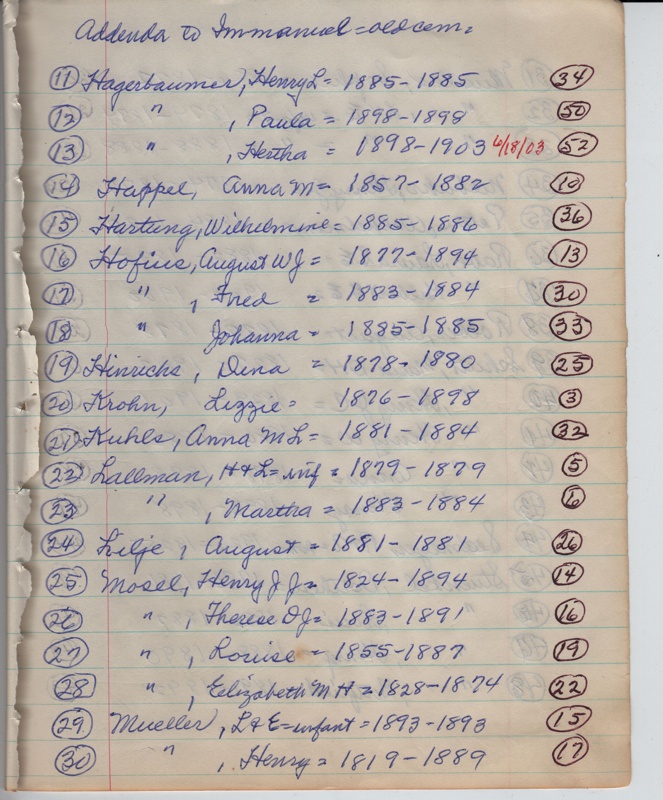 Addenda to Immanuel = old cem.
11 Hagerbaumer, Henry L = 1885-1885 34
12 " , Paula = 1898-1898 50
13 " , Hertha = 1898-1903 6/18/03 52
14 Happel, Anna M = 1857-1882 10
15 Hartung, Wilhelmine = 1885-1886 36
16 Hofius, August W J = 1877-1894 13
17 " , Fred = 1883-1884 30
18 " Johanna = 1885-1885 33
19 Hinrichs, Dena = 1878-1880 25
20 Krohn, Lizzie = 1876-1898 3
21 Kuhls, Anna M L = 1881-1884 32
22 Lallman, H & L = inf = 1879-1879 5
23 " , Martha = 1883-1884 6
24 Lilje, August = 1881-1881 26
25 Mosel, Henry J J = 1824-1894 14
26 " , Therese D J = 1883-1891 16
27 " , Louise = 1855-1887 19
28 " , Elizabeth M H = 1828-1874 22
29 Mueller, L & E = infant = 1893-1893 15
30 " , Henry = 1819-1889 17